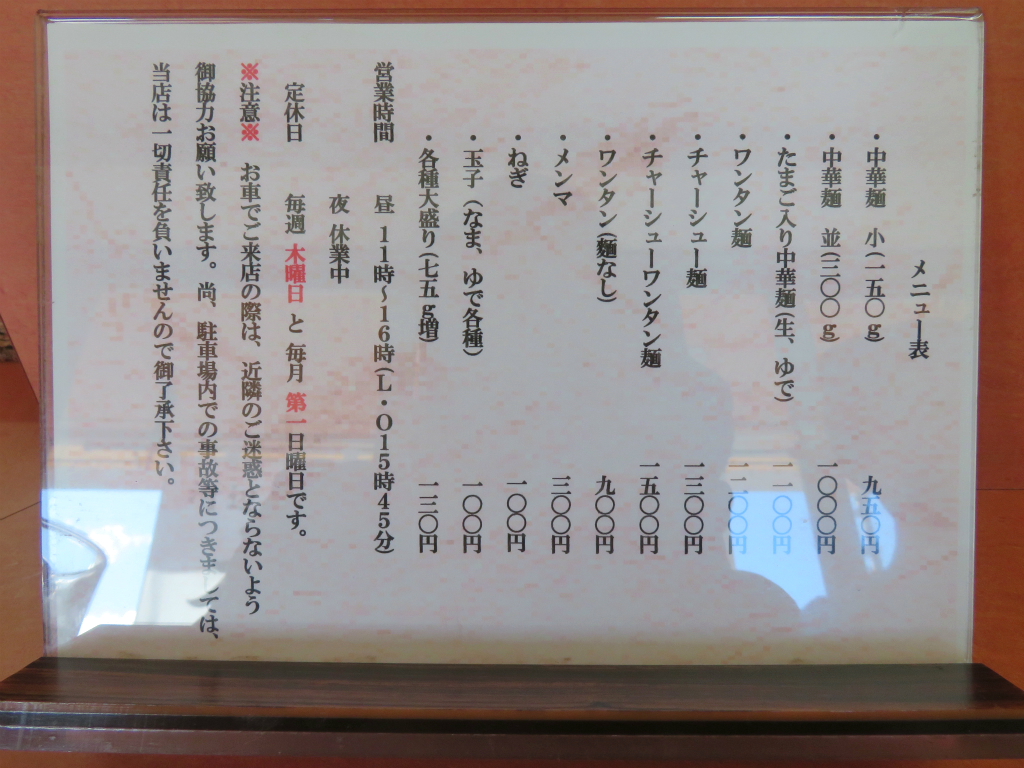 メニュー表
・中華麺 小（一五〇ｇ） 九五〇円
・中華麺 並（三〇〇ｇ） 一〇〇〇円
・たまご入り中華麺（生、ゆで） 一一〇〇円
・ワンタン麺 一二〇〇円
・チャーシュー麺 一三〇〇円
・チャーシューワンタン麺 一五〇〇円
・ワンタン（麺なし） 九〇〇円
・メンマ 三〇〇円
・ねぎ 一〇〇円
・玉子（なま、ゆで各種） 一〇〇円
・各種大盛り（七五ｇ増） 一三〇円
営業時間 昼 １１時～１６時（Ｌ・Ｏ１５時４５分）
夜 休業中
定休日 毎週 木曜日 と 毎月 第一日曜日です。
※注意※ お車でご来店の際は、近隣のご迷惑とならないよう
御協力お願い致します。尚、駐車場内での事故等につきましては、
当店は一切責任を負いませんので御了承下さい。